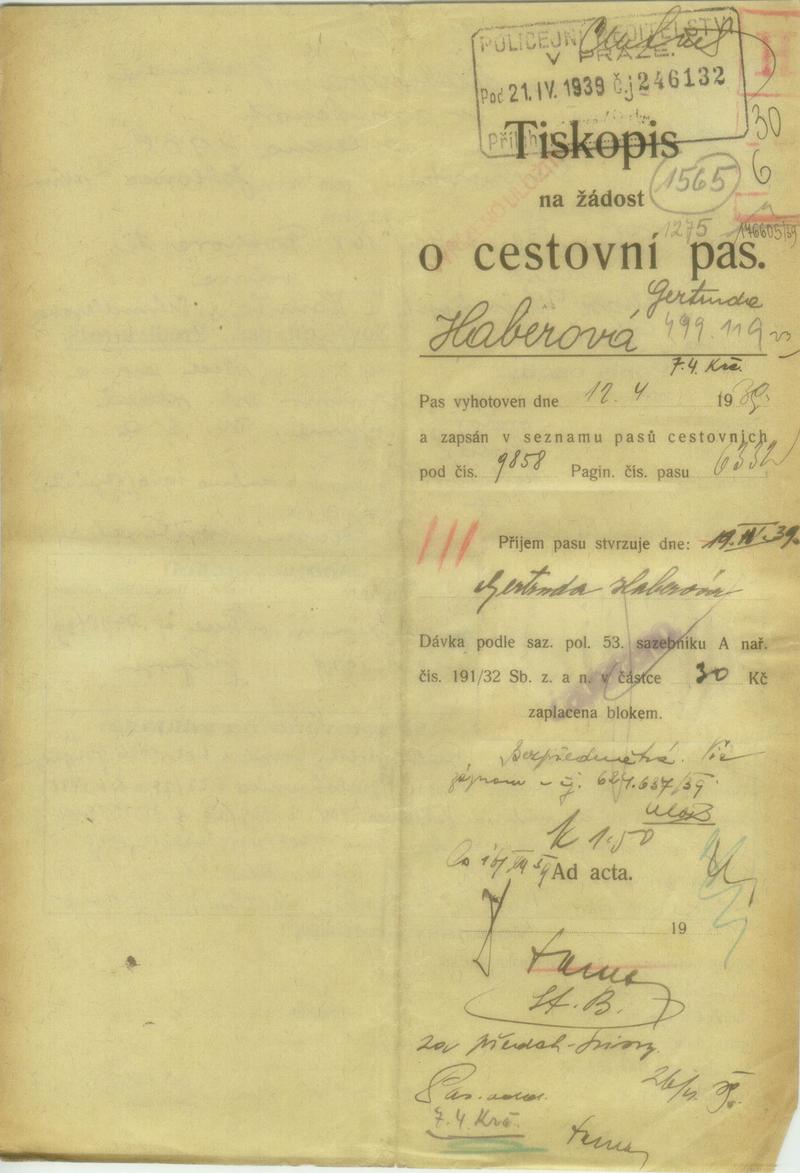 POLICEJNÍ ŘEDITELSTVÍ
V PRAZE.
Pod 21.IV.1939 Č.j 246132
Příloh
30
6
Tiskopis
1565
na žádost
1275 146605/39
o cestovní pas.
Gertruda
Haberová 499.119
7.4. Krč.
Pas vyhotoven dne 12. 4. 1939.
a zapsán v seznamu pasů cestovních
pod čís. 9858 Pagin. čís. pasu 6332
Příjem pasu stvrzuje dne: 19.IV.39.
Gertruda Haberová
Dávka podle saz. pol. 53. sazebníku A nař.
čís. 191/32 Sb. z. a n. v částce 30 Kč
zaplacena blokem.
Bezpředmětná. Viz
záznam – čj. 627.637/39.
K 1.50
Ad acta.
19
St. B.
za předch.
Pas. odd.
7.4 Krč.